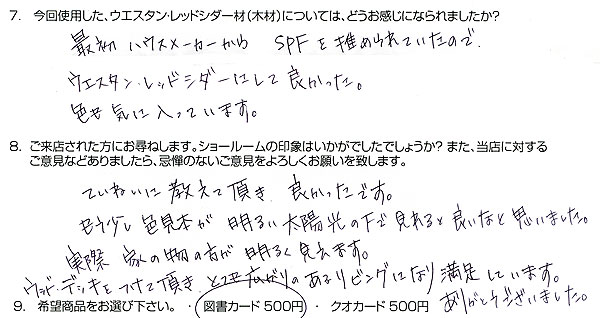 7. 今回使用した、ウエスタン・レッドシダー材(木材)については、どうお感じになられましたか?
最初 ハウスメーカーから SPFを推められていたので、
ウエスタン・レッドシダーにして良かった。
色も気に入っています。
8. ご来店された方にお尋ねします。ショールームの印象はいかがでしたでしょうか? また、当店に対する
ご意見などありましたら、忌憚のないご意見をよろしくお願いを致します。
ていねいに教えて頂き 良かったです。
もう少し色見本が明るい太陽光の下で見れると良いなと思いました。
実際 家の物の方が明るく見えます。
ウッドデッキをつけて頂き とても広がりのあるリビングになり満足しています。
9. 希望商品をお選び下さい。 ・ 図書カード500円 ・ クオカード500円 ありがとうございました。